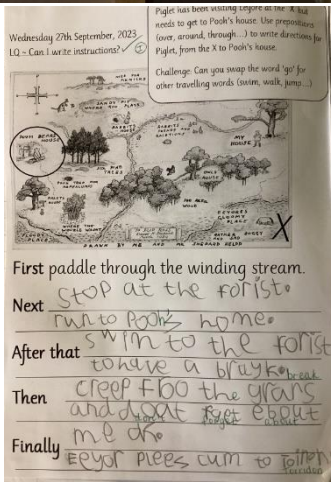 Wednesday 27th September, 2023
LQ - Can I write instructions?
Piglet has been visiting Eeyore at the X but
needs to get to Pooh's house. Use prepositions
(over, around, through...) to write directions for
Piglet, from the X to Pooh's house.
Challenge: Can you swap the word 'go' for
other travelling words (swim, walk, jump...)
POOH BEARS
HOUSE
RABBITS
HOUSE
RABBITS
FRIENDS AND
RELATIONS
MY
HOUSE
OWLS
HOUSE
EEYORES
GLOOMY
PLACE
X
DRAWN BY ME AND MR SHEPARD HELPD
First paddle through the winding stream.
Next stop at the forist.
run to Pooh's home.
After that swim to the forist
to have a brayk. break
Then creep floo the grars
and doat forget ebout
don't forget about
Finally me ok.
Eeyor plees cum to